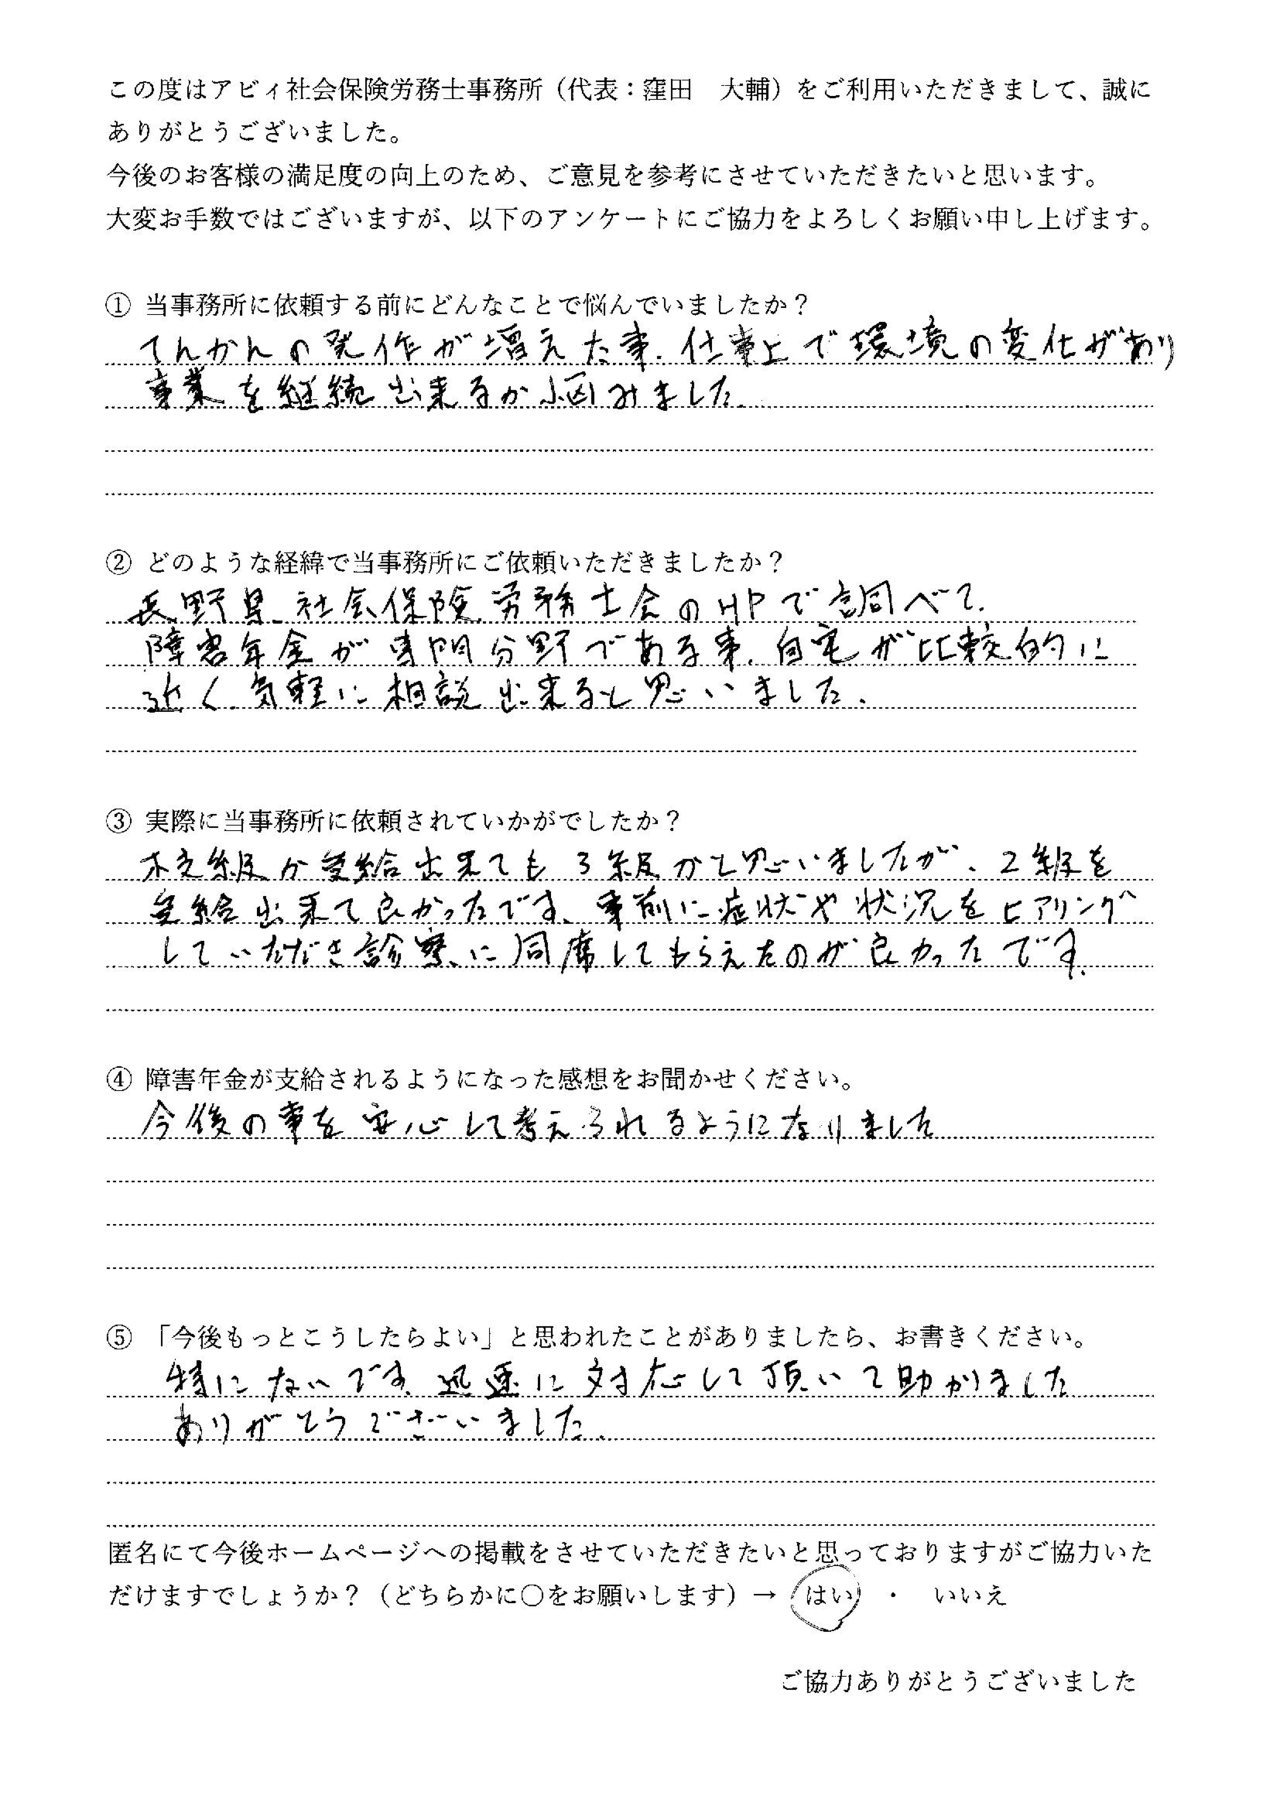 この度はアビィ社会保険労務士事務所（代表：窪田　大輔）をご利用いただきまして、誠に
ありがとうございました。
今後のお客様の満足度の向上のため、ご意見を参考にさせていただきたいと思います。
大変お手数ではございますが、以下のアンケートにご協力をよろしくお願い申し上げます。
① 当事務所に依頼する前にどんなことで悩んでいましたか？
てんかんの発作が増えた事、仕事上で環境の変化があり
事業を継続出来るか悩みました。
② どのような経緯で当事務所にご依頼いただきましたか？
長野県社会保険労務士会のHPで調べて、
障害年金が専門分野である事、自宅が比較的に
近く気軽に相談出来ると思いました。
③ 実際に当事務所に依頼されていかがでしたか？
等級が受給出来ても3級かと思いましたが、2級を
受給出来て良かったです、事前に症状や状況をヒアリング
していただき診察に同席してもらえたのが良かったです。
④ 障害年金が支給されるようになった感想をお聞かせください。
今後の事を安心して考えられるようになりました
⑤ 「今後もっとこうしたらよい」と思われたことがありましたら、お書きください。
特にないです、迅速に対応して頂いて助かりました
ありがとうございました。
匿名にて今後ホームページへの掲載をさせていただきたいと思っておりますがご協力いた
だけますでしょうか？（どちらかに〇をお願いします）→ はい ・ いいえ
ご協力ありがとうございました